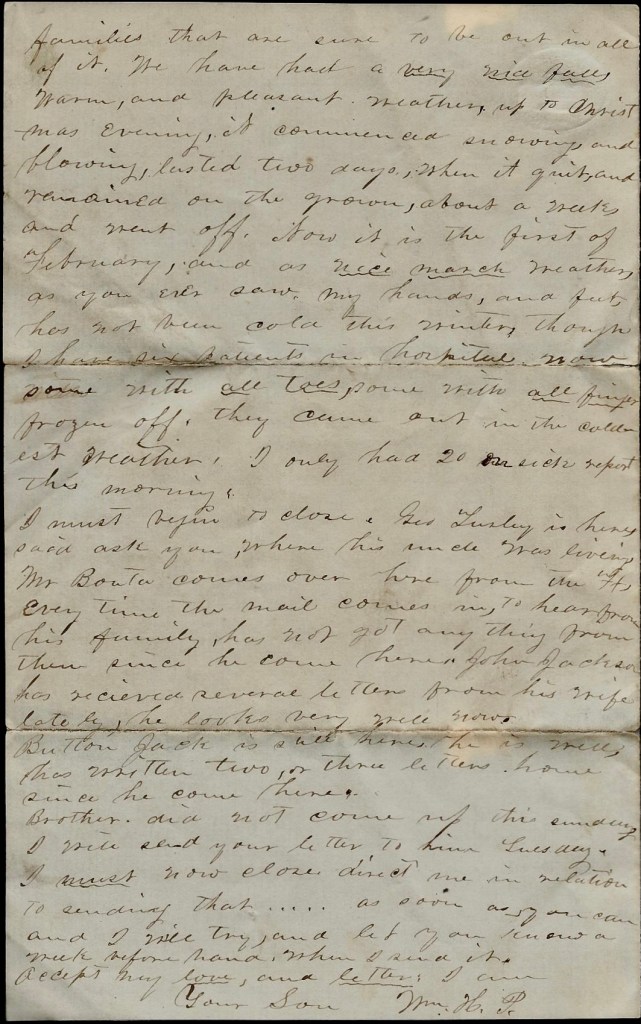 families that are sure to be out in all
of it. We have had a very nice fall,
Warm, and pleasant. weather, up to Christ
mas Evening, it commenced snowing and
blowing, lasted two days, when it quit, and
remained on the grown, about a weeks
and went off. Now it is the first of
February, and as nice march weather,
as you ever saw. My hands, and feet,
has not been cold this winter, though
I have six patients in hospital now
some with all toes, some with all finger
frozen off. they came out in the cold
est weather. I only had 20 on sick report
this morning.
I must begin to close. Geo is here,
said ask you, where his uncle was living
Mr Bonta comes over here from the "Ft,
every time the mail comes in, to hear from
his family, has not got any thing from
them since he come here. John Jackson
has recieved several letters from his wife
lately, he looks very well now.
Button Jack is still here, he is well,
has written two, or three letters home
since he come here.
Brother. did not come up this sunday
I will send your letter to him Tuesday.
I must now close. direct me in relation
to sending that ..... as soon as you can
and I will try, and let you know a
week before hand, when I send it.
Accept my love, and letter, I am
Your Son Wm. H. P.